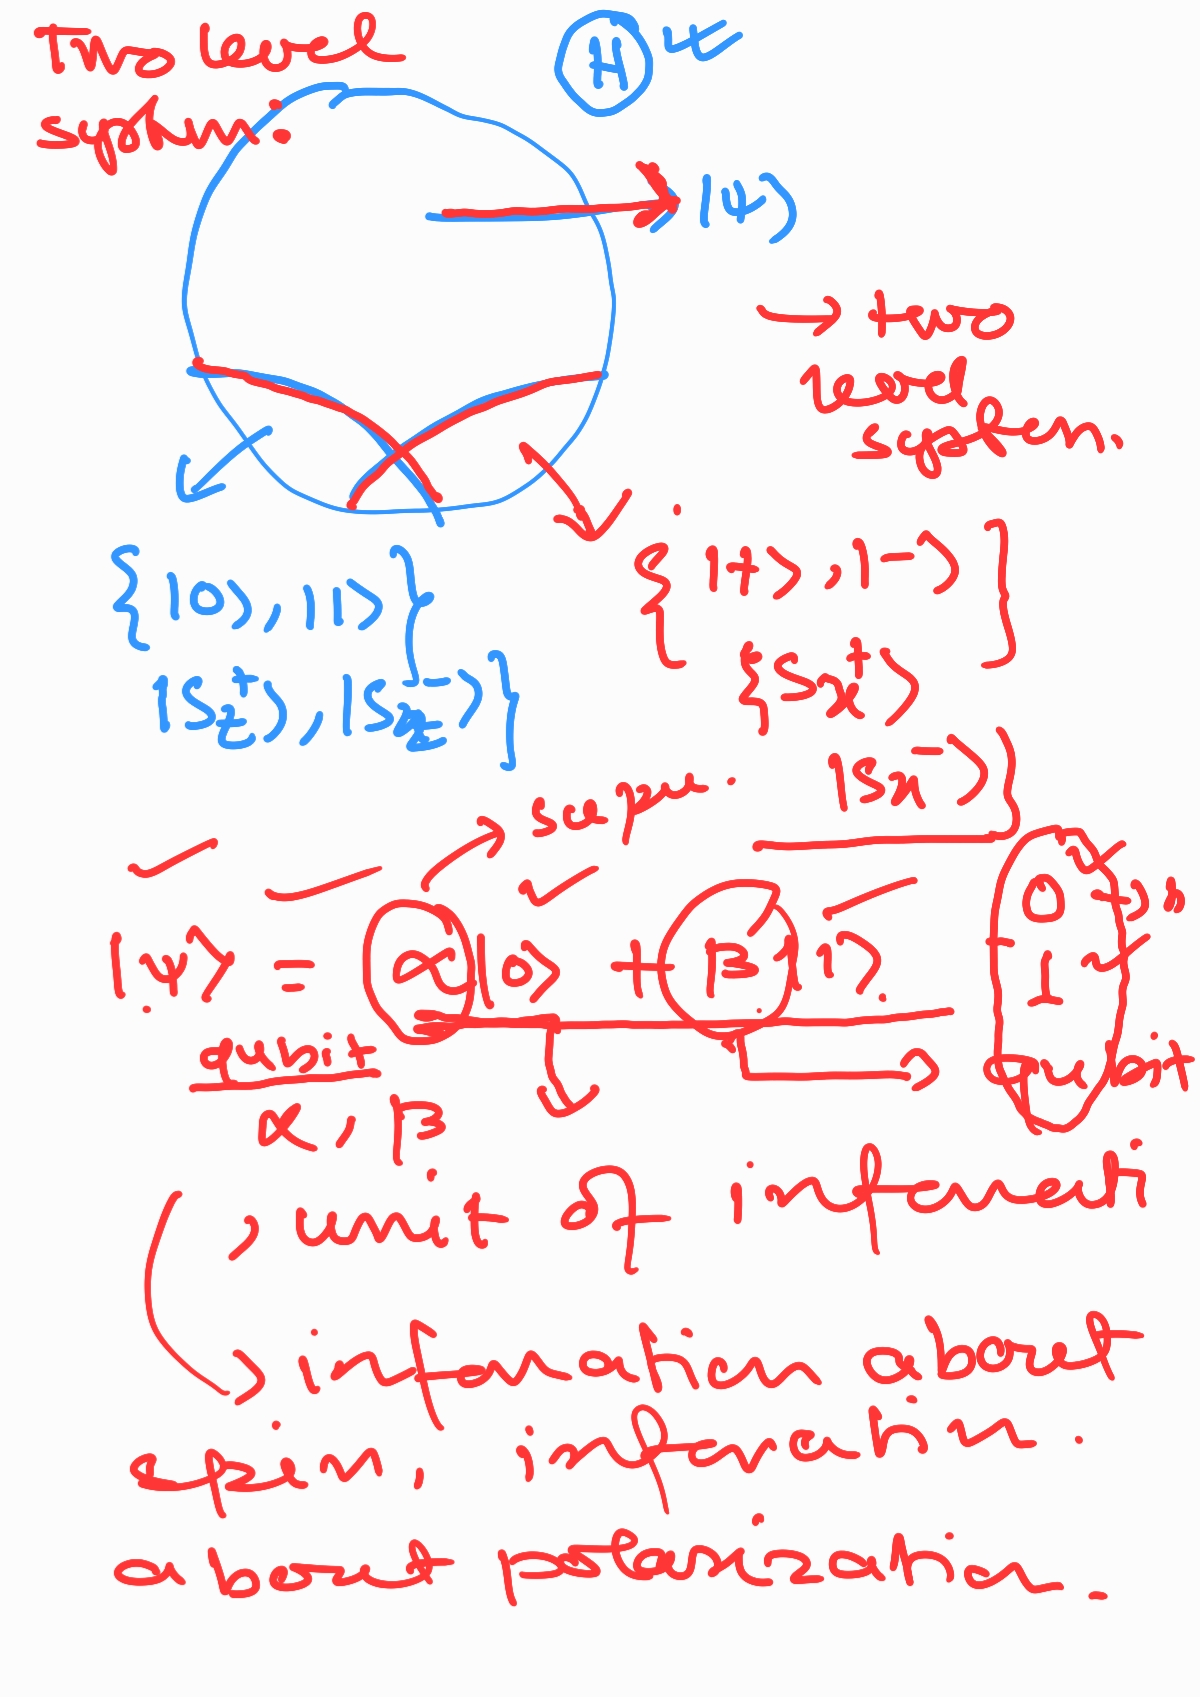 Two level
system.
H ψ
|ψ⟩
→ two
level
system.
{|0⟩, |1⟩}
{|+⟩, |−⟩}
|Sz+⟩, |Sz−⟩}
{Sx+⟩
|Sx−⟩}
|ψ⟩ = α|0⟩ + β|1⟩.
0
1
qubit
qubit
α, β
, unit of informati
→ information about
spin, information.
about polarization.